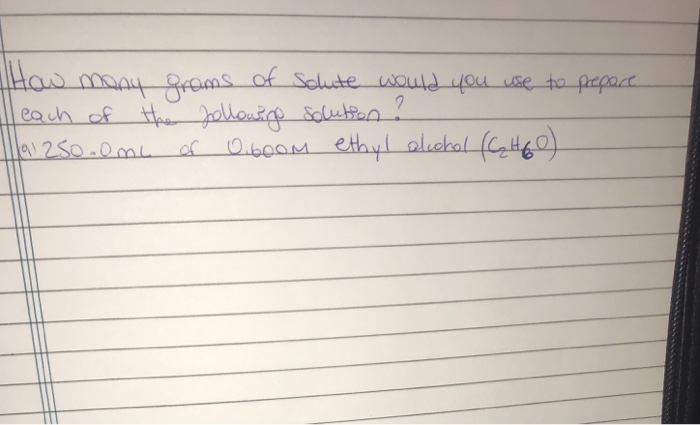 How many grams of solute would you use to prepare
each of the following solution?
a) 250.0mL of 0.600M ethyl alcohol (C₂H6O)